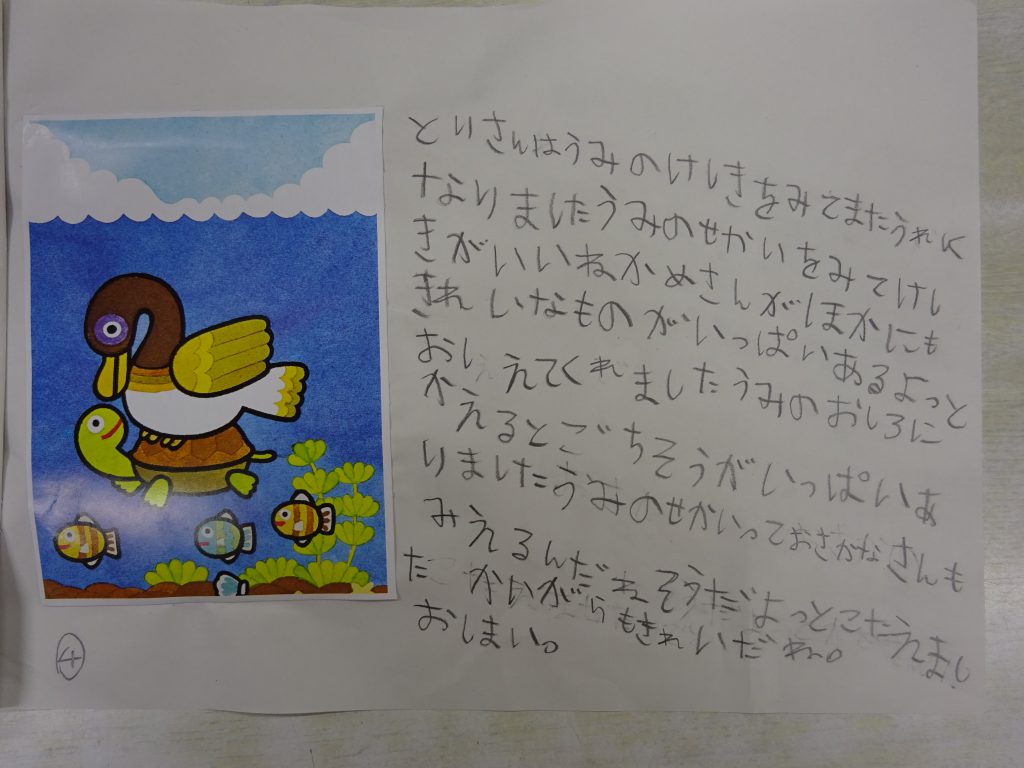 とりさんはうみのけしきをみてまたうれしく
なりましたうみのせかいをみてけし
きがいいねかめさんがほかにも
きれいなものがいっぱいあるよっと
おしえてくれましたうみのおしろに
かえるとごちそうがいっぱいあ
りましたうみのせかいっておさかなさんも
みえるんだねそうだよっとこたえまし
たかいがらもきれいだね。
おしまい。
④